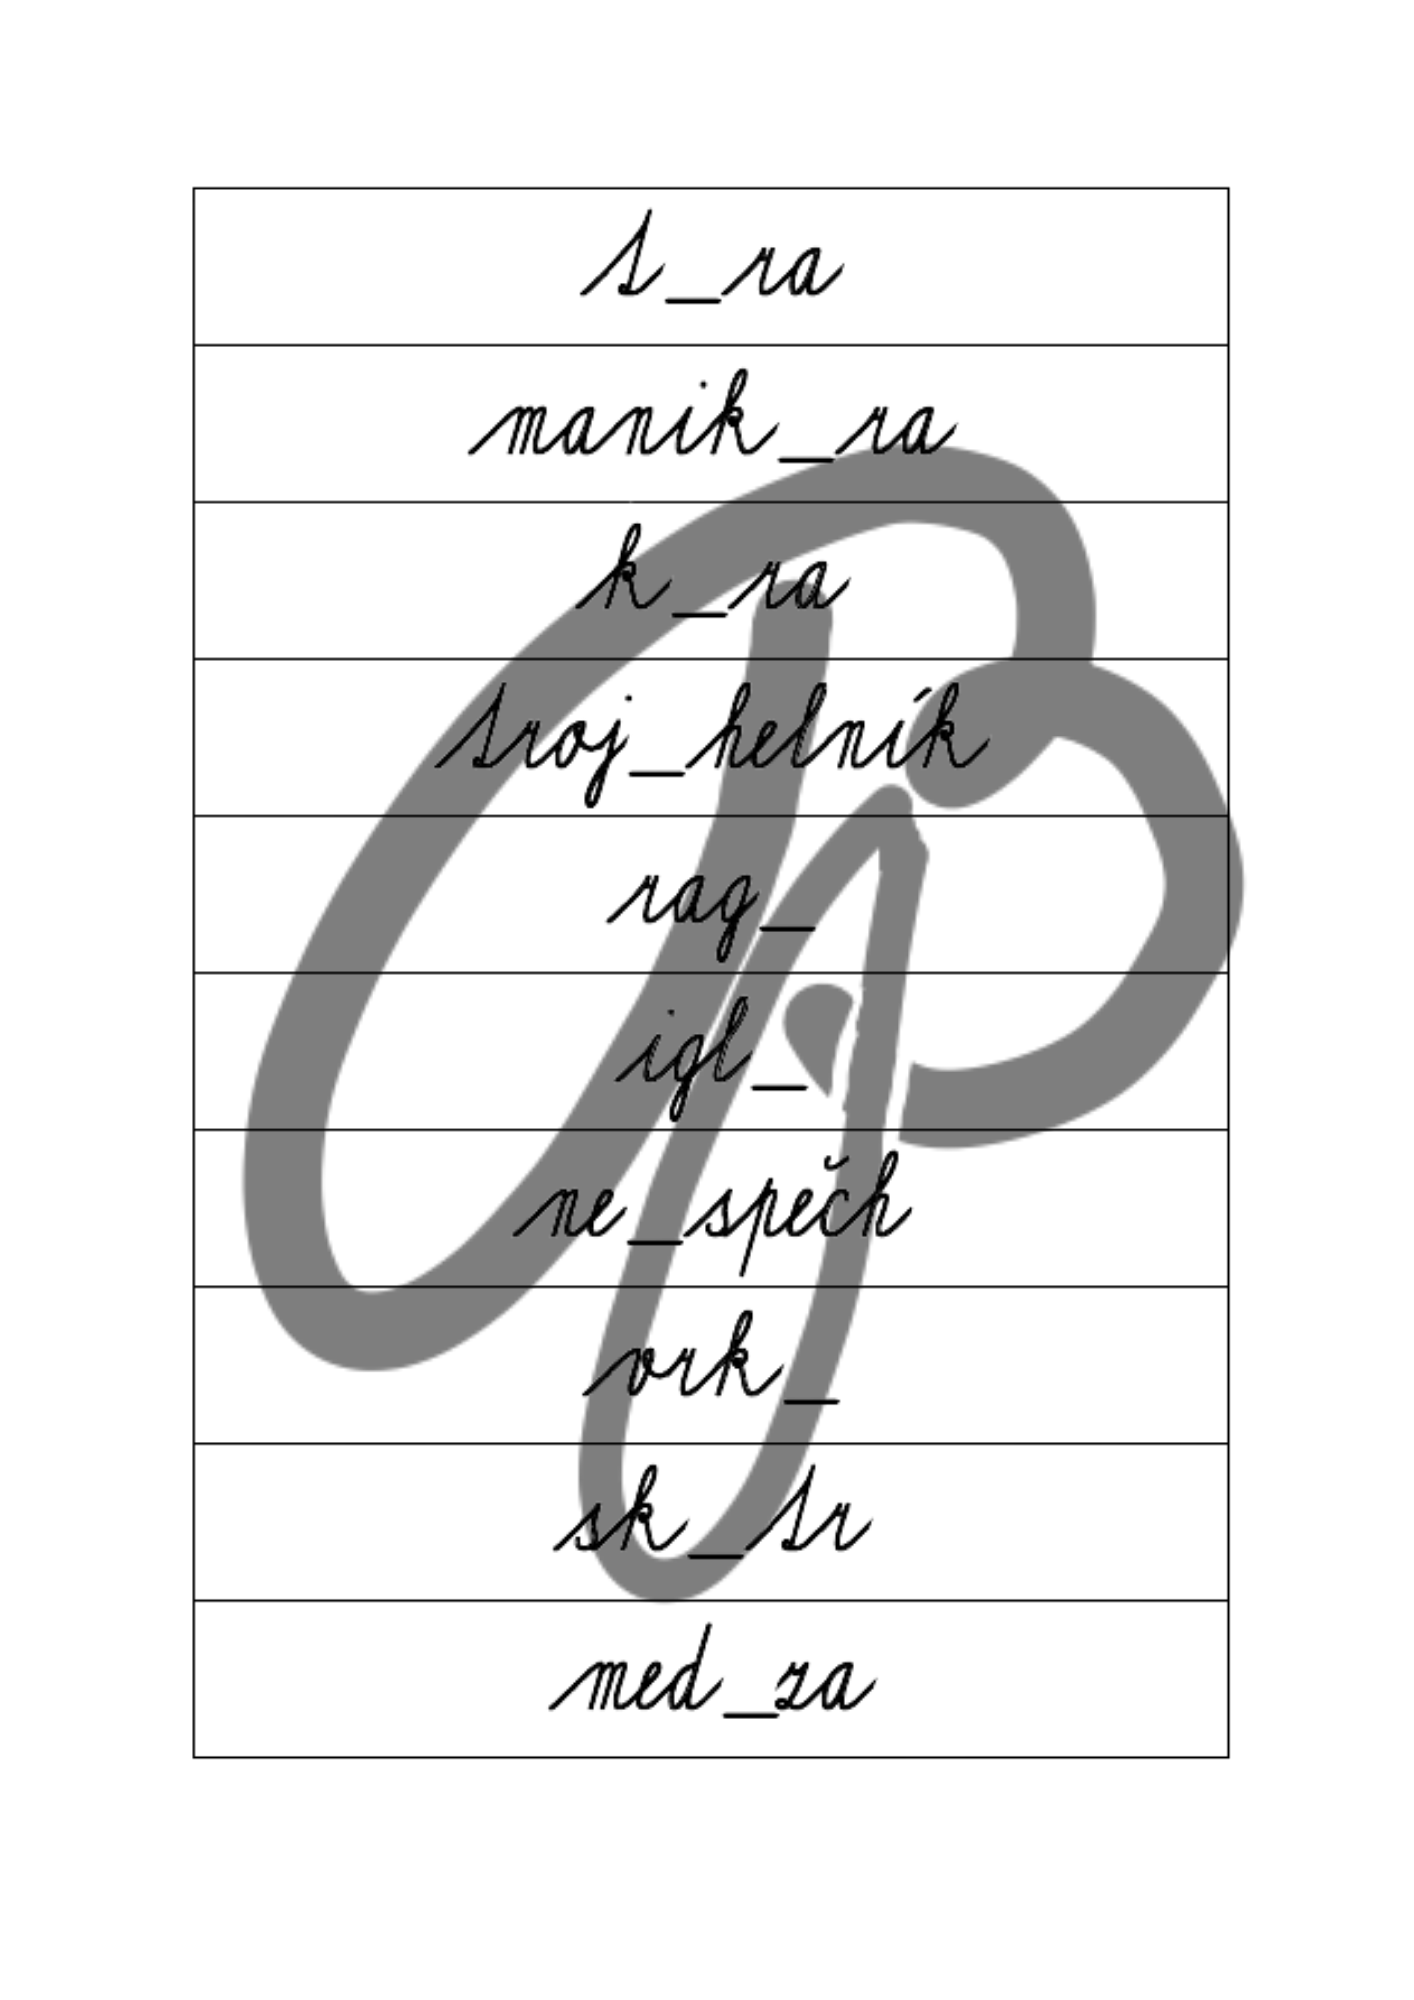 t_ra
manik_ra
k_ra
troj_helník
rag_
igl_
ne_spěch
vrk_
sk_tr
med_za